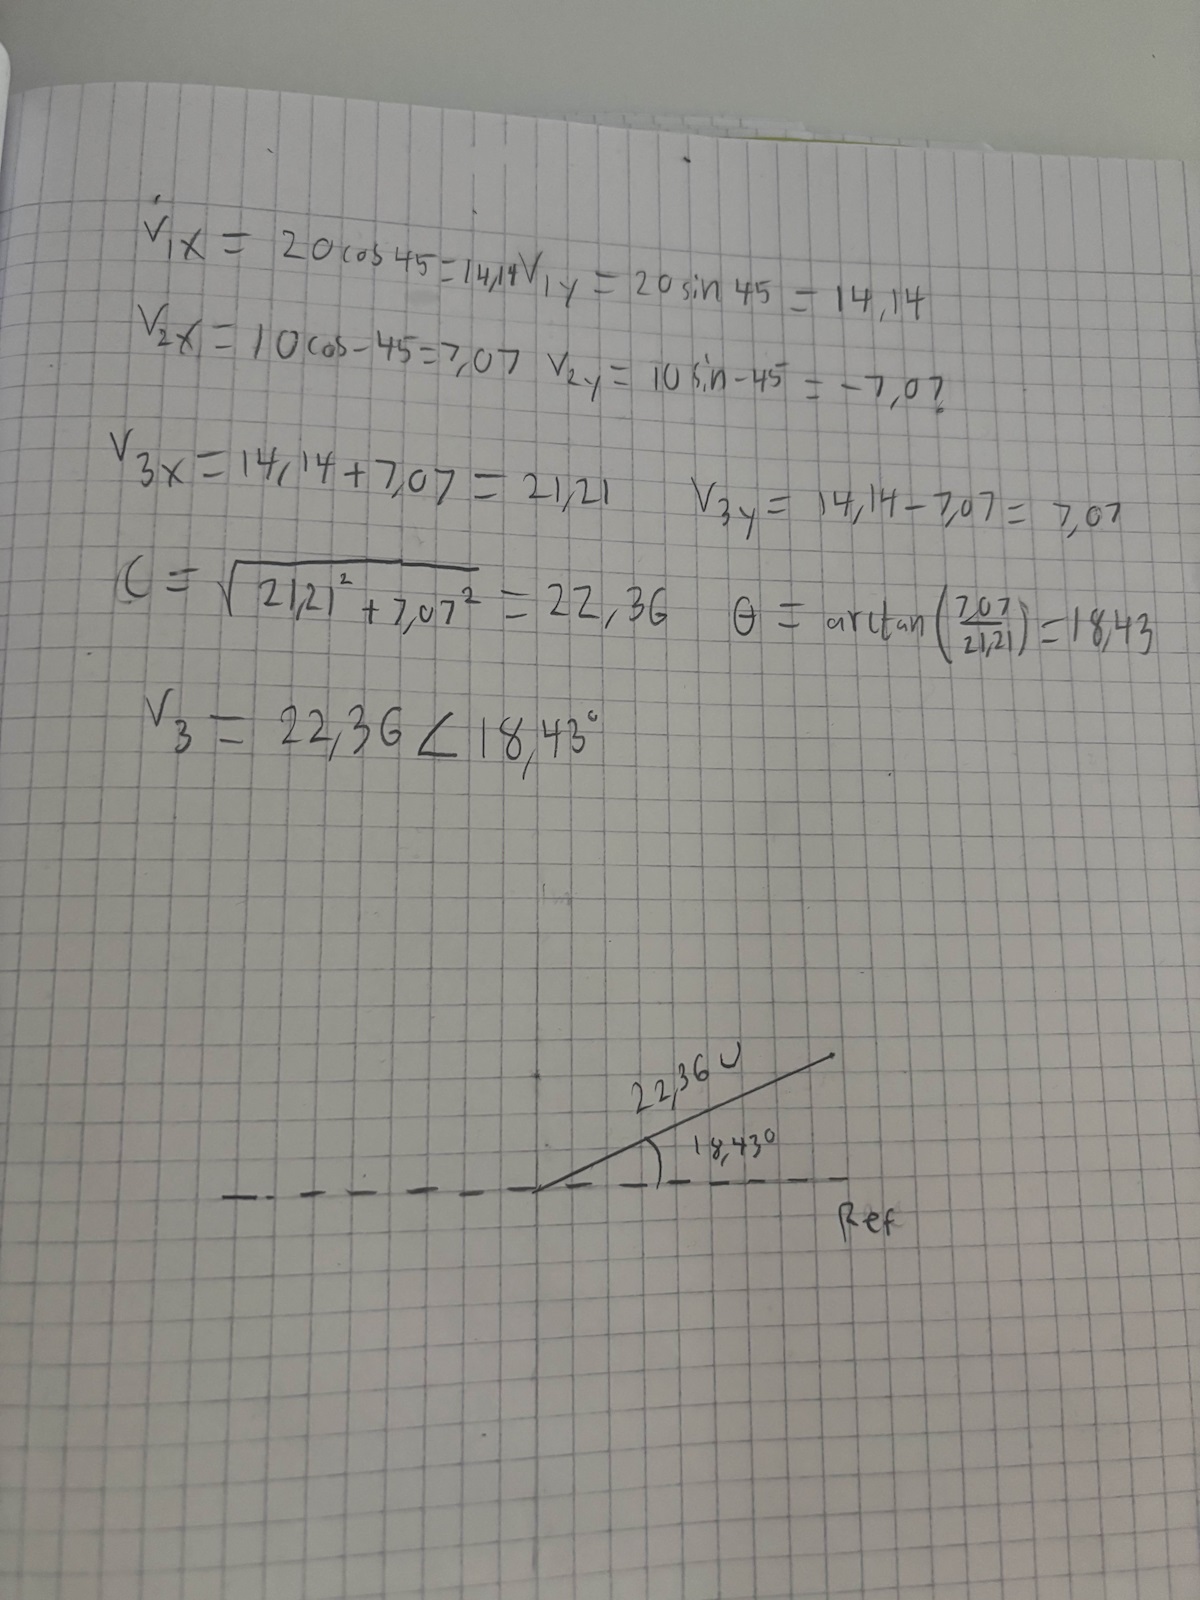 V1x = 20cos45=14,14 V1y = 20sin45 = 14,14
V2x = 10cos-45=7,07 V2y = 10sin-45 = -7,07
V3x = 14,14+7,07 = 21,21 V3y = 14,14-7,07 = 7,07
C = √21,21² + 7,07² = 22,36 θ = arctan(7,07/21,21) = 18,43
V3 = 22,36 < 18,43°
22,36 V
18,43°
Ref